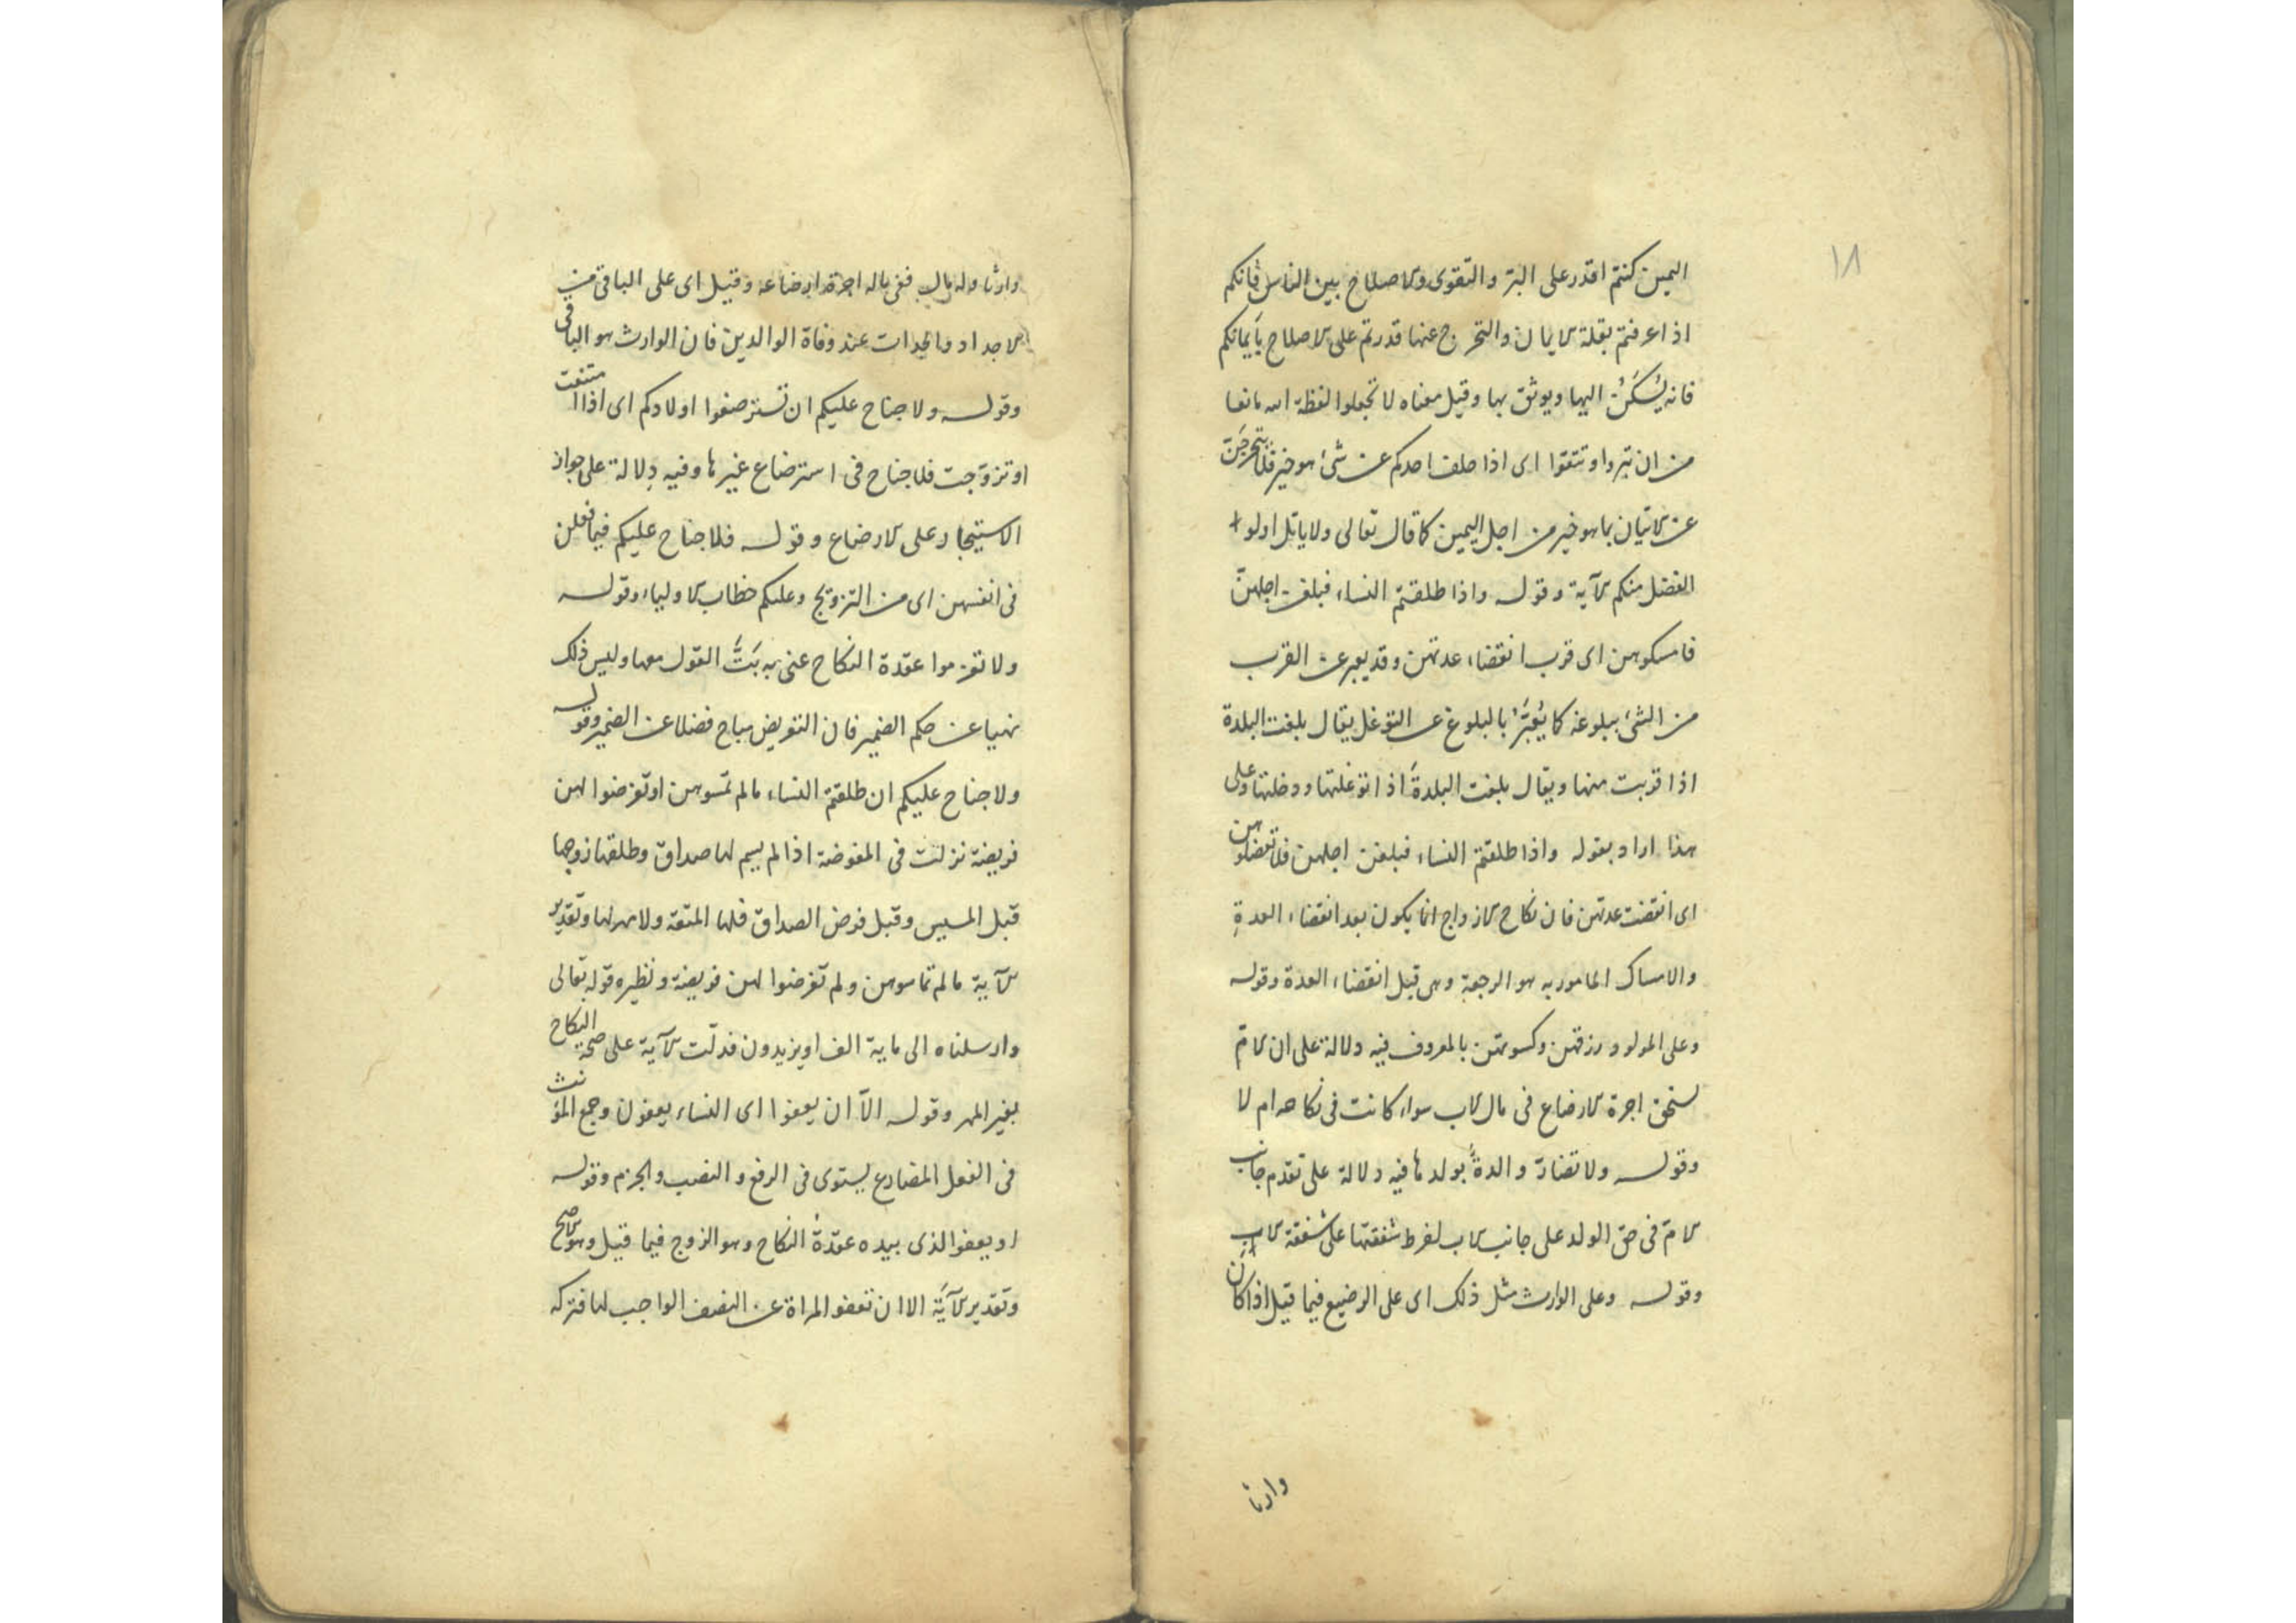 ١٨
اليمين كنتم اقدر على البرّ والتقوى والاصلاح بين الناس فانكم
اذا عرفتم بقلة الايمان والتحرج عنها قدرتم على الاصلاح بأيمانكم
فانه يُسكَنُ اليها ويوثق بها وقيل معناه لا تجعلوا لفظة الله مانعا
من ان تبروا وتتقوا اى اذا حلف احدكم عن شئ هو خير فلا يتحرجَنّ
عن الاتيان بما هو خير من اجل اليمين كما قال تعالى ولا ياتل اولوا
الفضل منكم الآية وقوله واذا طلقتم النساء فبلغن اجلهنّ
فامسكوهن اى قرب انقضاء عدتهن وقد يعبر عن القرب
من الشئ ببلوغه كما يُعَبَّرُ بالبلوغ عن التوغل يقال بلغت البلدة
اذا قربت منها ويقال بلغت البلدةَ اذا توغلتها ودخلتها وعلى
هذا اراد بقوله واذا طلقتم النساء فبلغن اجلهن فلا تعضلوهن
اى انقضت عدتهن فان نكاح الازواج انما يكون بعد انقضاء العدةِ
والامساك المامور به هو الرجعة وهى قبل انقضاء العدة وقوله
وعلى المولود رزقهن وكسوتهن بالمعروف فيه دلالة على ان الامّ
تستحق اجرة الارضاع فى مال الاب سواء كانت فى نكاحه ام لا
وقوله ولا تضارّ والدةٌ بولدها فيه دلالة على تقدم جانب
الامّ فى حق الولد على جانب الاب لفرط شفقتها على شفقة الاب
وقوله وعلى الوارث مثل ذلك اى على الرضيع فيما قيل اذا كان
وارثا
وارثا وله مال ففى ماله اجرة ارضاعه وقيل اى على الباقى من
الاجداد والجدات عند وفاة الوالدين فان الوارث هو الباقى
وقوله ولا جناح عليكم ان تسترضعوا اولادكم اى اذا امتنعت
او تزوّجت فلا جناح فى استرضاع غيرها وفيه دلالة على جواز
الاستيجار على الارضاع وقوله فلا جناح عليكم فيما فعلن
فى انفسهن اى من التزويج وعليكم خطاب الاولياء وقوله
ولا تعزموا عقدة النكاح عنى به بَتَّ القول معها وليس ذلك
نهيا عن حكم الضمير فان التعريض مباح فضلا عن الضمير وقوله
ولا جناح عليكم ان طلقتم النساء ما لم تمسوهن او تفرضوا لهن
فريضة نزلت فى المفوضة اذا لم يسم لها صداق وطلقها زوجها
قبل المسيس وقبل فرض الصداق فلها المتعة ولا مهر لها وتقدير
الآية ما لم تماسوهن ولم تفرضوا لهن فريضة ونظيره قوله تعالى
وارسلناه الى ماية الف او يزيدون فدلّت الآية على صحة النكاح
بغير المهر وقوله الاّ ان يعفوا اى النساء يعفون وجمع المؤنث
فى الفعل المضارع يستوى فى الرفع والنصب والجزم وقوله
او يعفو الذى بيده عقدةُ النكاح وهو الزوج فيما قيل وهو الاصح
وتقدير الآيَة الا ان تعفو المراة عن النصف الواجب لها فتركه